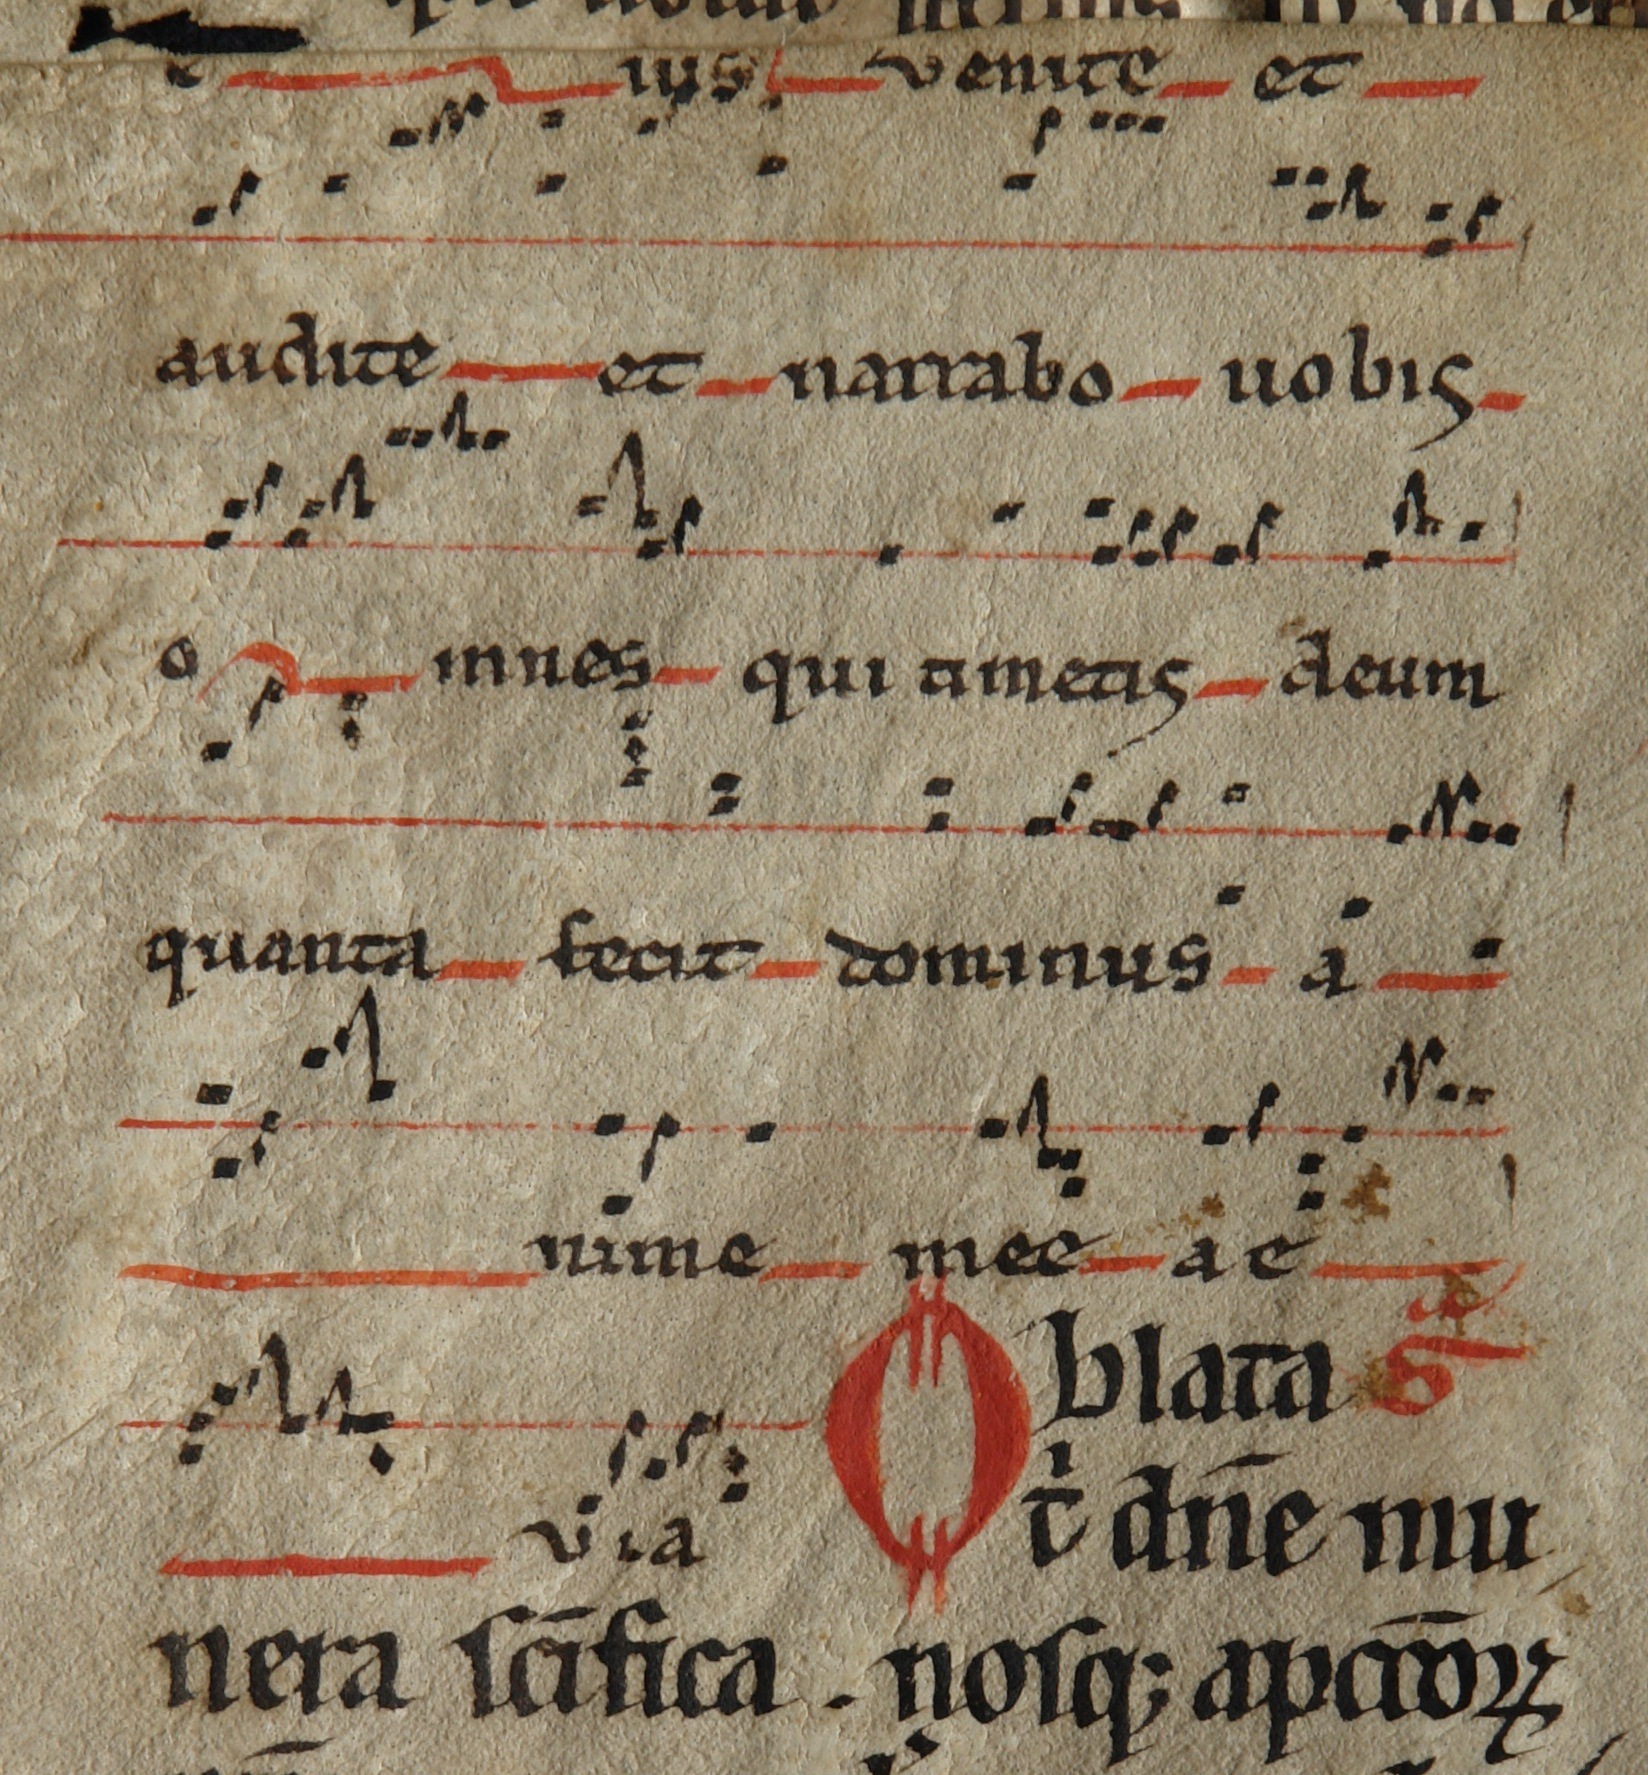 e ius venite et
audite et narrabo uobis
omnes qui timetis deum
quanta fecit dominus a
nime mee ae
via
Oblata Sᵃ
t̄ dn̄e mu
nera sc̄ifica . nosq; ap̄cioꝝ